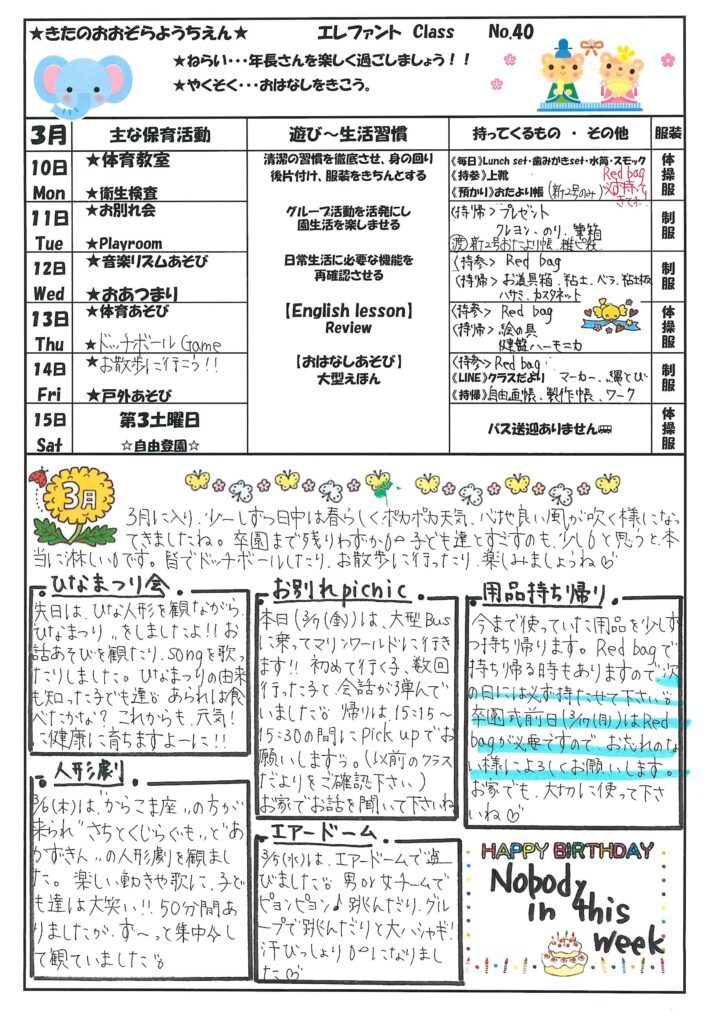 ★きたのおおぞらようちえん★ エレファント Class No.40
★ねらい・・・年長さんを楽しく過ごしましょう！！
★やくそく・・・おはなしをきこう。
3月 主な保育活動 遊び～生活習慣 持ってくるもの ・ その他 服装
10日 Mon
★体育教室
★衛生検査
清潔の習慣を徹底させ、身の回り
後片付け、服装をきちんとする
《毎日》Lunch set・歯みがきset・水筒・スモック
《持参》上靴
《預かり》おたより帳（新2号のみ）
Red bag
必ず持って
きてね
体操服
11日 Tue
★お別れ会
★Playroom
グループ活動を活発にし
園生活を楽しませる
〈持帰〉プレゼント
クレヨン、のり、筆箱
新2号おたより帳、雑ピ袋
制服
12日 Wed
★音楽リズムあそび
★おあつまり
日常生活に必要な機能を
再確認させる
〈持参〉 Red bag
〈持帰〉お道具箱、粘土、ベラ、粘土板
ハサミ、カスタネット
制服
13日 Thu
★体育あそび
★ドッチボール Game
【English lesson】
Review
〈持参〉 Red bag
〈持帰〉絵の具
鍵盤ハーモニカ
体操服
14日 Fri
★お散歩に行こう！！
★戸外あそび
【おはなしあそび】
大型えほん
〈持参〉Red bag
《LINE》クラスだより マーカー、縄とび
《持帰》自由画帳、製作帳、ワーク
制服
15日 Sat
第3土曜日
☆自由登園☆
バス送迎ありません
体操服
3月
3月に入り、少ーしずつ日中は春らしくポカポカ天気、心地良い風が吹く様になっ
てきましたね。卒園まで残りわずか 子ども達とすごすのも、少しと思うと、本
当に淋しいです。皆でドッチボールしたり、お散歩に行ったり、楽しみましょうね♡
ひなまつり会
先日は、ひな人形を観ながら、
ひなまつり〟をしましたよ!! お
話あそびを観たり、songを歌っ
たりしました。ひなまつりの由来
も知った子ども達 あられは食
べたかな？ これからも、元気！
に健康に育ちますよーに!!
お別れpicnic
本日(3/7(金))は、大型Bus
に乗ってマリンワールドに行きま
す!! 初めて行く子、数回
行った子と、会話が弾んで
いました 帰りは、15:15～
15:30の間にPick upでお
願いします。(以前のクラス
だよりをご確認下さい)
お家でお話を聞いて下さいね
用品持ち帰り
今まで使っていた用品を少しず
つ持ち帰ります。Red bagで
持ち帰る時もありますので、次
の日には必ず持たせて下さい
卒園式前日(3/17(月))はRed
bagが必要ですので、お忘れのな
い様によろしくお願いします。
お家でも、大切に使って下さ
いね♡
人形劇
3/6(木)は、からこま座〟の方が
来られ〝さちとくじらぐも〟と〝あ
かずきん〟の人形劇を観まし
た。楽しい動きや歌に、子ど
も達は大笑い!! 50分間あ
りましたが、ず～っと集中
して観ていました
エアードーム
3/5(水)は、エアードームで遊
びました 男or女チームで
ピョンピョン♪跳んだり、グル
ープで跳んだりと大ハシャギ！
汗びっしょり になりまし
た♡
HAPPY BIRTHDAY
Nobody
in this
week